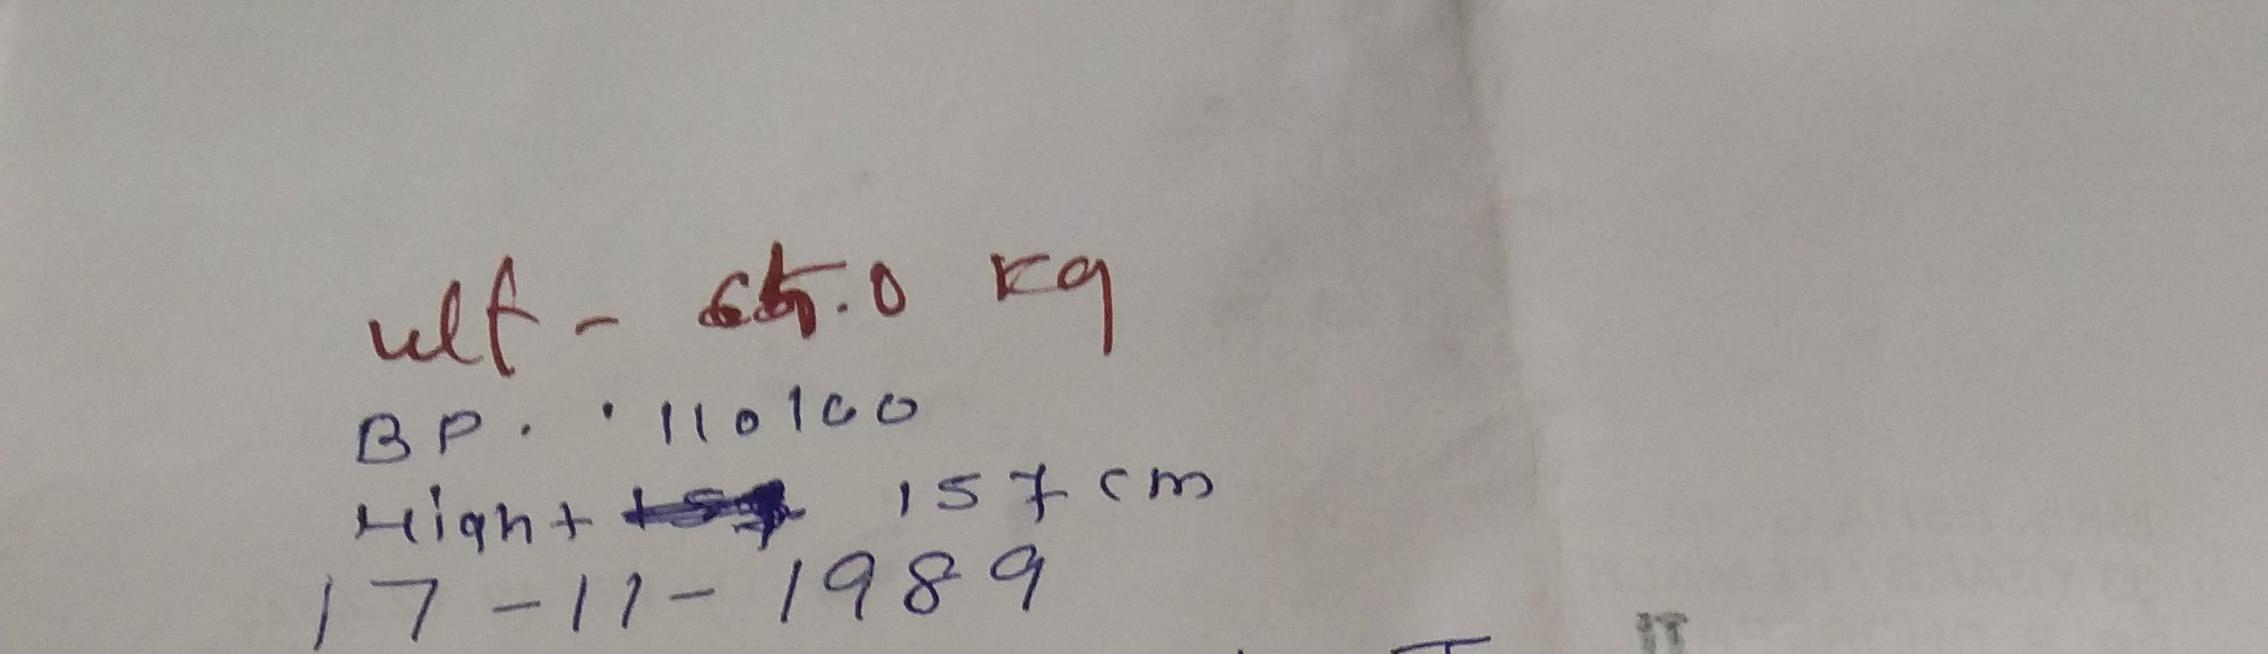 wt - 65.0 kg
BP. 110100
Hight 157 cm
17-11-1989